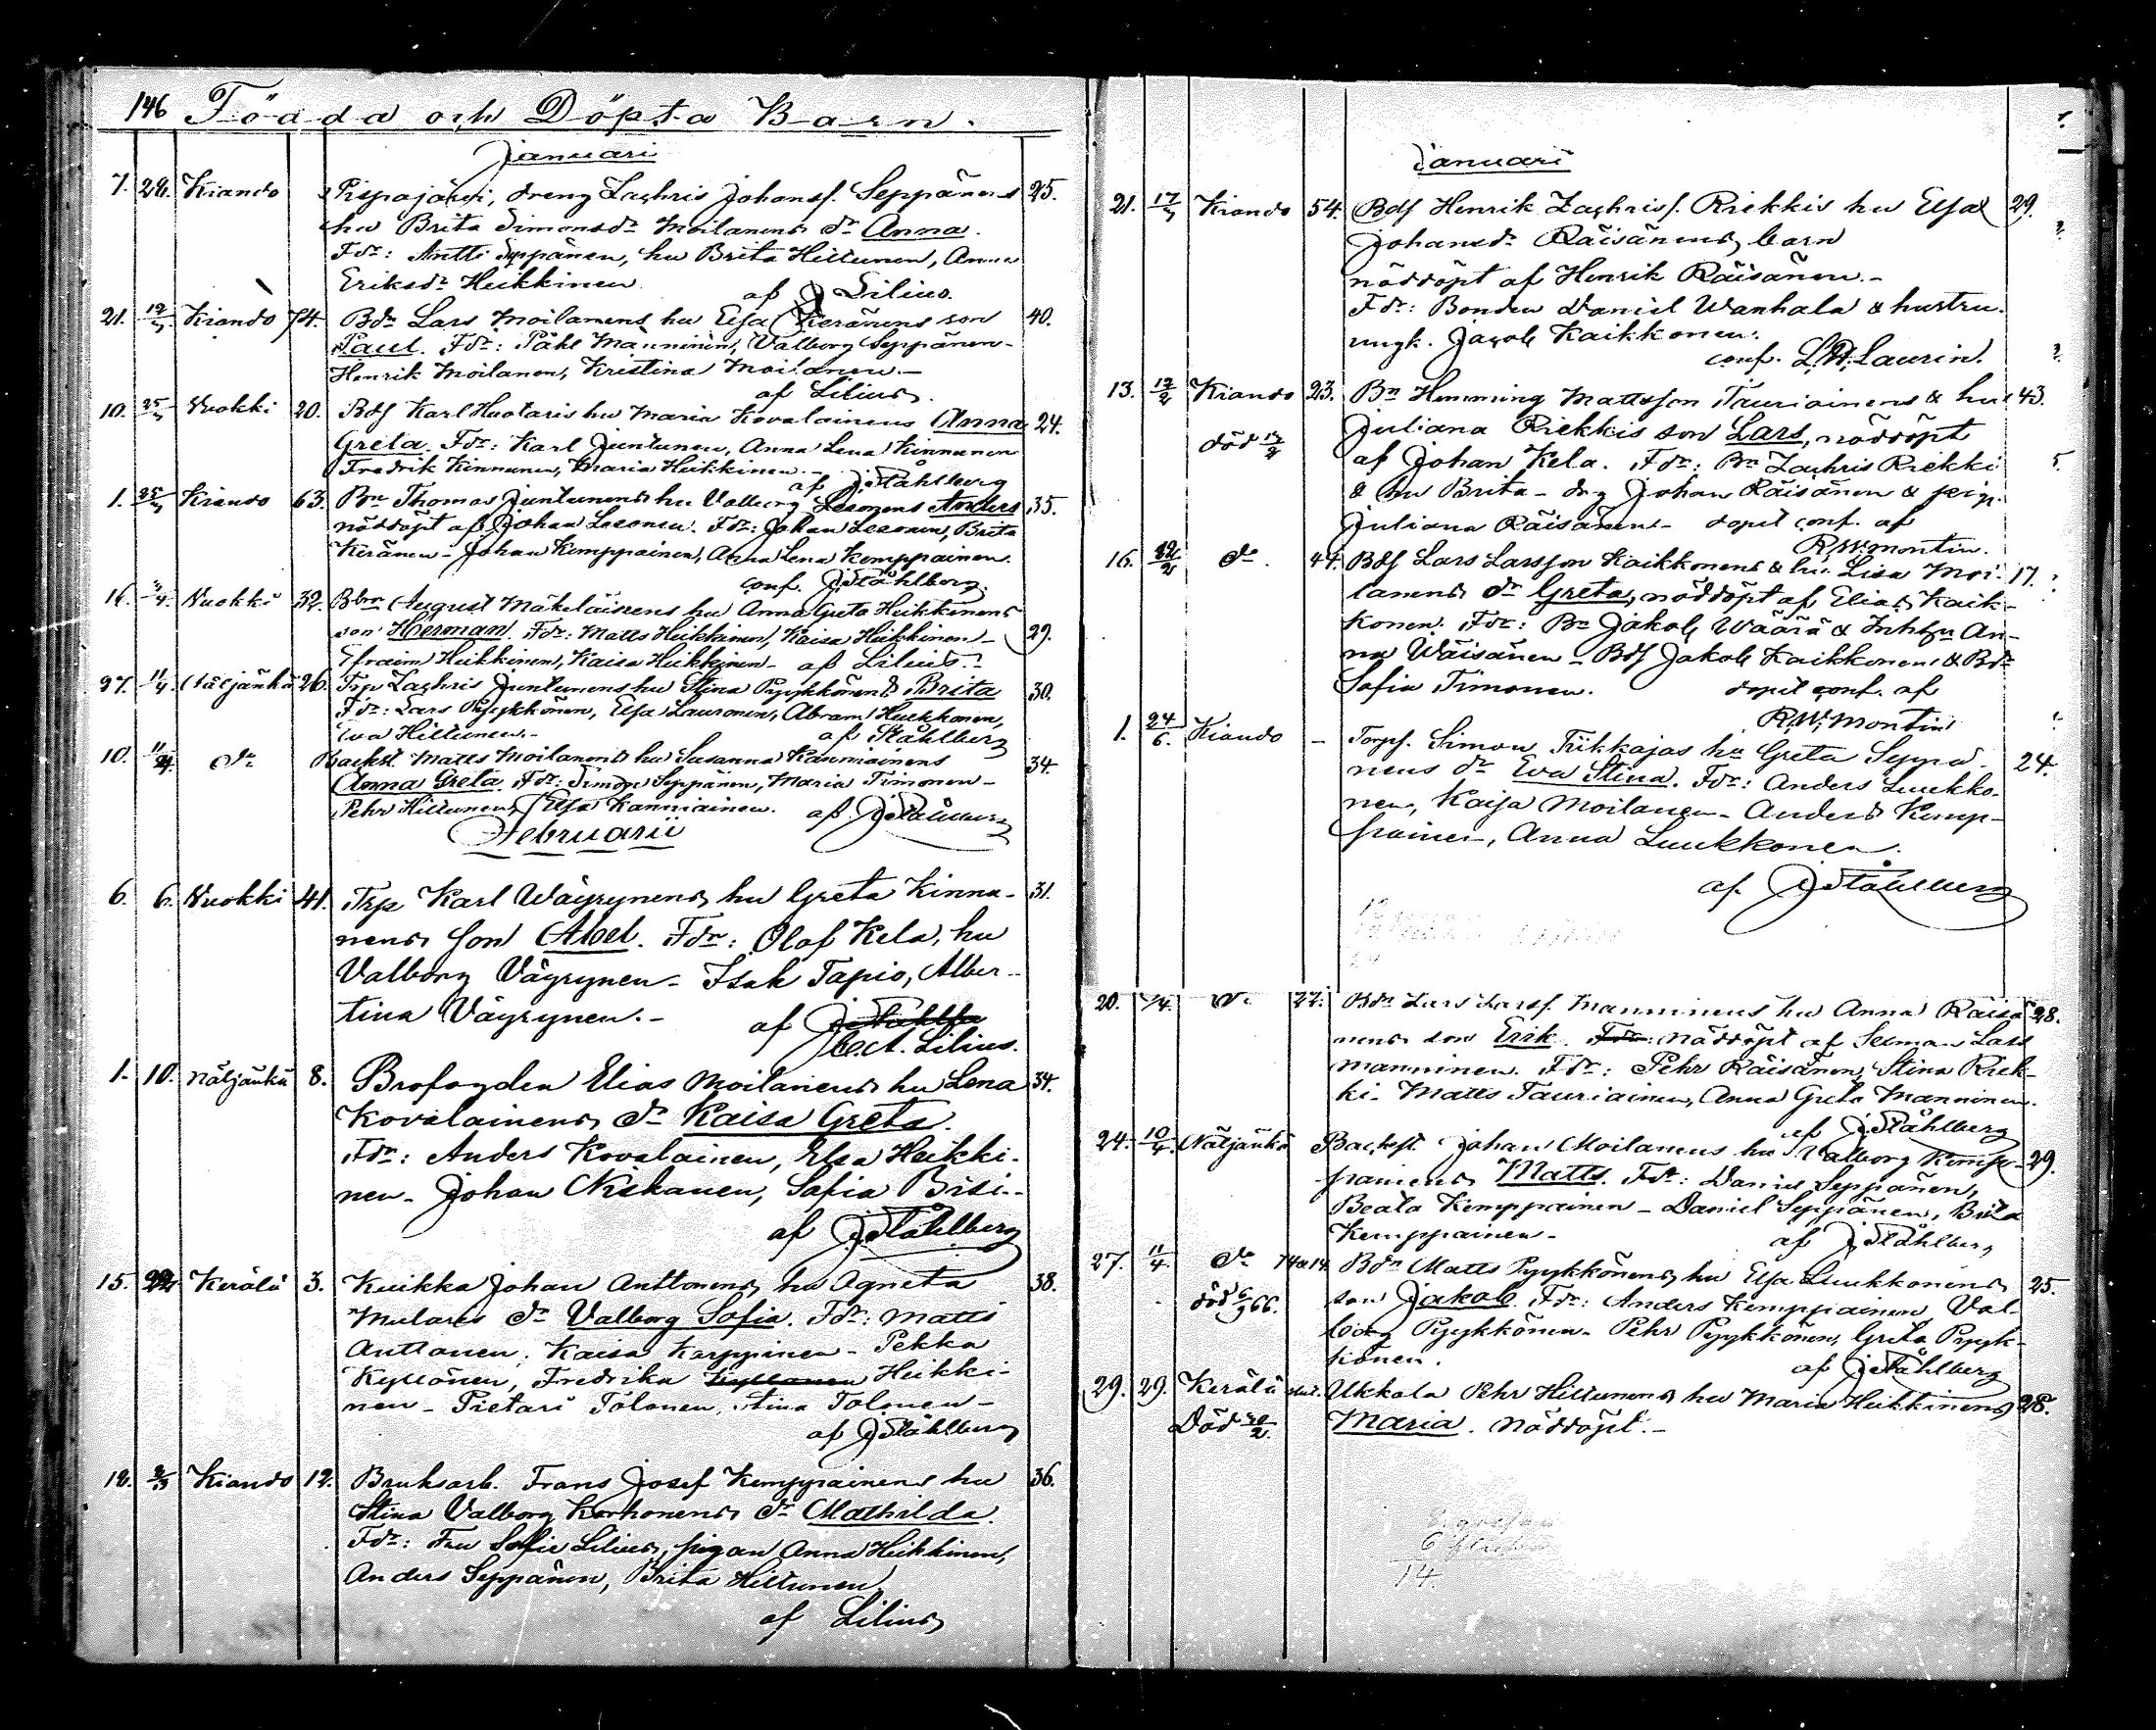 146 Födda och Döpta Barn.
Januari
7. 28. Kiando Pispajärvi, dreng Zachris Johansf. Seppänens 25.
hu Brita Simonsdr Moilanens dr Anna.
Fdr: Antti Seppänen, hu Brita Hiltunen, Anna
Eriksdr Heikkinen af Lilius.
21. Kiando 74. Bdn Lars Moilanens hu Elsa Keränens son 40.
Paul. Fdr: Påhl Manninen, Valborg Seppänen-
Henrik Moilanen, Kristina Moilanen.-
af Lilius.
10. Vuokki 20. Bdf Karl Huotaris hu Maria Kovalainens Anna 24.
Greta. Fdr: Karl Juntunen, Anna Lena Kinnunen
Fredrik Kinnunen, Maria Heikkinen.-
af J. Ståhlberg
1. Kiando 63. Bn Thomas Juntunens hu Valborg Lesonens Anders 35.
nöddöpt af Johan Lesonen. Fdr: Johan Lesonen, Brita
Keränen - Johan Kemppainen, Anna Lena Kemppainen.
conf. J. Ståhlberg.
16. Vuokki 32. August Mäkeläinens hu Anna Greta Heikkinens
son Herman. Fdr: Matts Heikkinen, Kaisa Heikkinen- 29.
Efraim Heikkinen, Kaisa Heikkinen- af Lilius.-
27. 11/4 Näljänkä 26. Trp Zachris Juntunens hu Stina Pyykkönens Brita 30.
Fdr: Lars Pyykkönen, Elsa Lauronen, Abram Huikkonen,
Eva Hiltunen.- af Ståhlberg
10. 11/4 dr Backst. Matts Moilanens hu Susanna Kanniainens 34.
Anna Greta. Fdr: Simon Seppänen, Maria Timonen-
Pehr Hiltunen, Elsa Kanniainen. af J. Ståhlberg
Februarii
6. 6. Vuokki 41. Trp Karl Wäyrynens hu Greta Kinnu- 31.
nens son Abel. Fdr: Olof Kela, hu
Valborg Väyrynen- Isak Tapio, Alber-
tina Väyrynen.- af J. Ståhlbe
C. A. Lilius.
1. 10. Näljänkä 8. Brofogden Elias Moilanens hu Lena 34.
Kovalainens dr Kaisa Greta.
Fdr: Anders Kovalainen, Elsa Heikki-
nen- Johan Niskanen, Sofia Bisi-
af J. Ståhlberg
15. Kerälä 3. Kuikka Johan Anttonens hu Agneta 38.
Mularis dr Valborg Sofia. Fdr: Matts
Anttonen, Kaisa Karppinen- Pekka
Kyllönen, Fredrika Kyllönen Heikki-
nen- Pietari Tolonen, Stina Tolonen-
af J. Ståhlberg
12. 2/3 Kiando 12. Bruksarb. Frans Josef Kemppainens hu 36.
Stina Valborg Korhonens dr Mathilda.
Fdr: Fru Sofie Lilius, pigan Anna Heikkinen,
Anders Seppänen, Brita Hiltunen.
af Lilius
Januari
21. Kiando 54. Bdf Henrik Zachrisf. Riekkis hu Elsa 29.
Johansdr Räisänens barn
nöddöpt af Henrik Räisänen.-
Fdr: Bonden Daniel Wanhala & hustru.
ungk. Jacob Kaikkonen.
conf. L. H. Laurin.
13. 12/2 Kiando 23. Bn Hemming Mattsson Tauriainens & hu 43.
död Juliana Riekkis son Lars, nöddöpt
af Johan Kela. Fdr: Bn Zachris Riekki
& hu Brita - drg Johan Räisänen & pig.
Juliana Räisänen- dopet conf. af
R. W. Montin.
16. dr. 44. Bdf Lars Larsson Kaikkonens & hu. Lisa Moi- 17.
lanens dr Greta, nöddöpt af Elias Kaik-
konen. Fdr: Bn Jakob Wäärä & Inhhn An-
na Wäisänen- Bdf Jakob Kaikkonen & Bdr
Sofia Timonen. dopet conf. af
R. W. Montin
1. 24/6. Kiando - Torpf. Simon Tikkajas hu Greta Seppä-
nens dr Eva Stina. Fdr: Anders Luukko- 24.
nen, Kaisa Moilanen- Anders Kemp-
painen, Anna Luukkonen.
af J. Ståhlberg
20. dr 27. Bdn Lars Larsf. Manninens hu Anna Räisä 28.
nens son Erik. Fdr: nöddöpt af Lars
Manninen. Fdr: Pehr Räisänen, Stina Riek-
ki- Matts Tauriainen, Anna Greta Manninen.
af J. Ståhlberg
24. 10/4. Näljänkä Backst. Johan Moilanens hu Valborg Kemp- 29.
painens Matts. Fdr: Daniel Seppänen,
Beata Kemppainen- Daniel Seppänen, Brita
Kemppainen- af J. Ståhlberg
27. 11/4. dr Bdn Matts Pyykkönens hu Elsa Luukkonens 25.
son Jakob. Fdr: Anders Kemppainen Val-
borg Pyykkönen- Pehr Pyykkönen, Greta Pyyk-
könen. af J. Ståhlberg
29. 29. Kerälä Ukkola Pehr Hiltunens hu Maria Heikkinens 28.
Död Maria. nöddöpt.-
14.